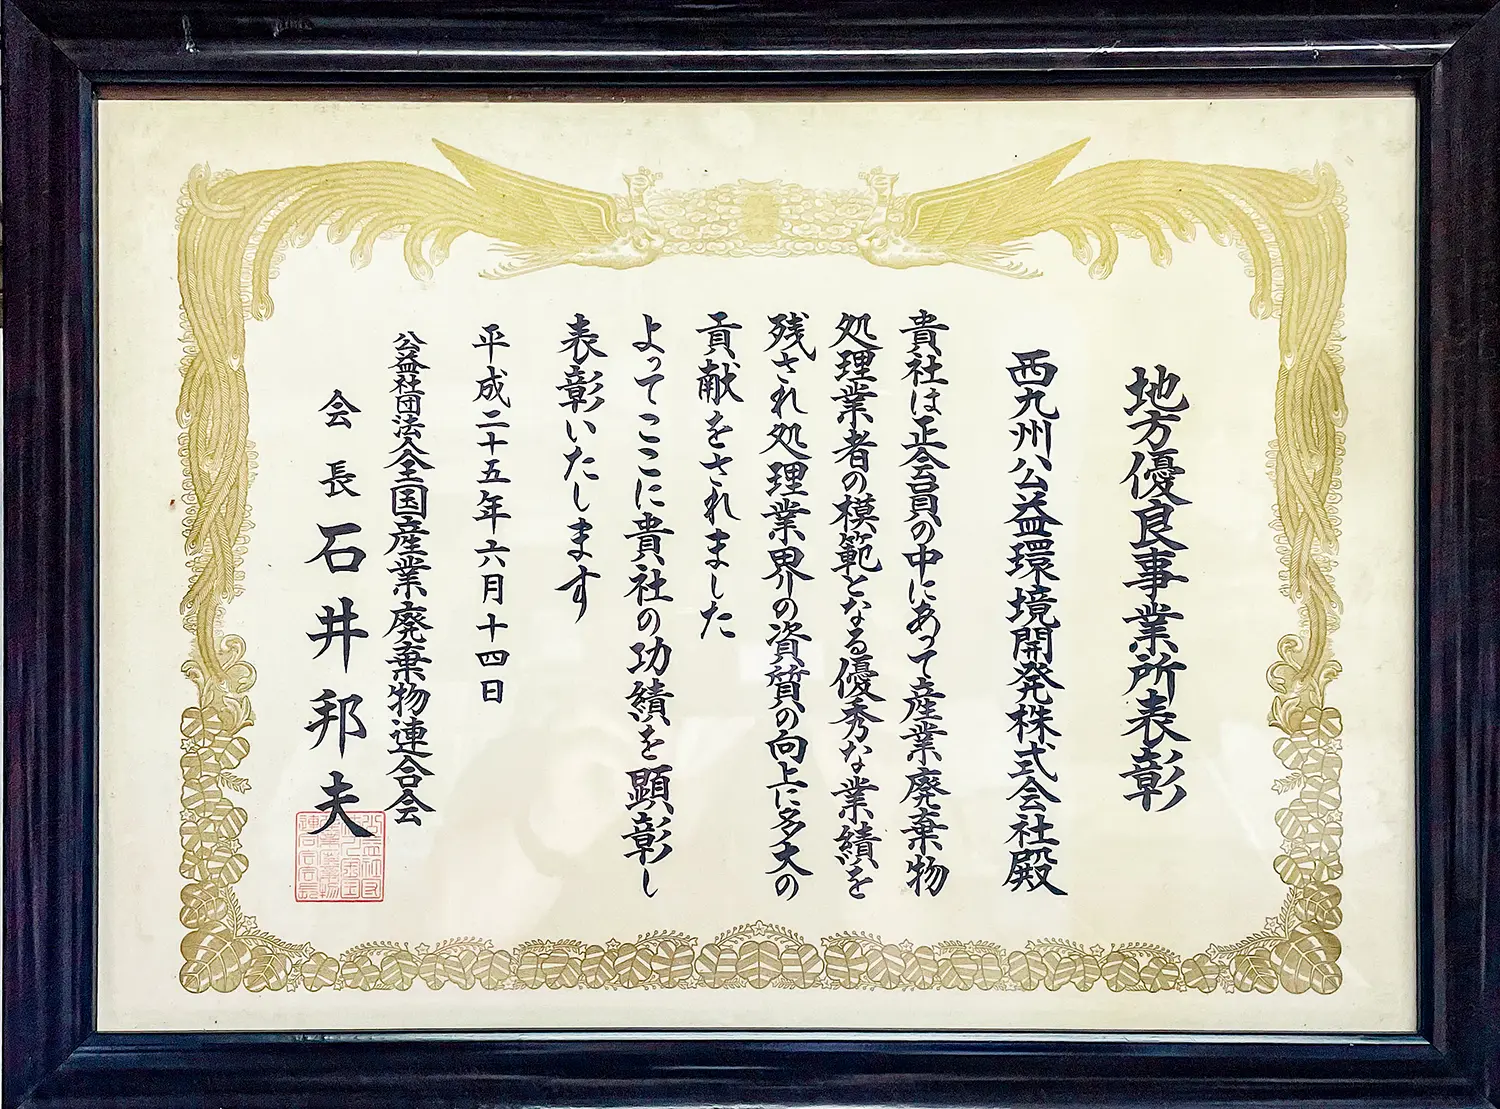 地方優良事業所表彰
西九州公益環境開発株式会社殿
貴社は正会員の中にあって産業廃棄物
処理業者の模範となる優秀な業績を
残され処理業界の資質の向上に多大の
貢献をされました
よってここに貴社の功績を顕彰し
表彰いたします
平成二十五年六月十四日
公益社団法人全国産業廃棄物連合会
会長 石井邦夫